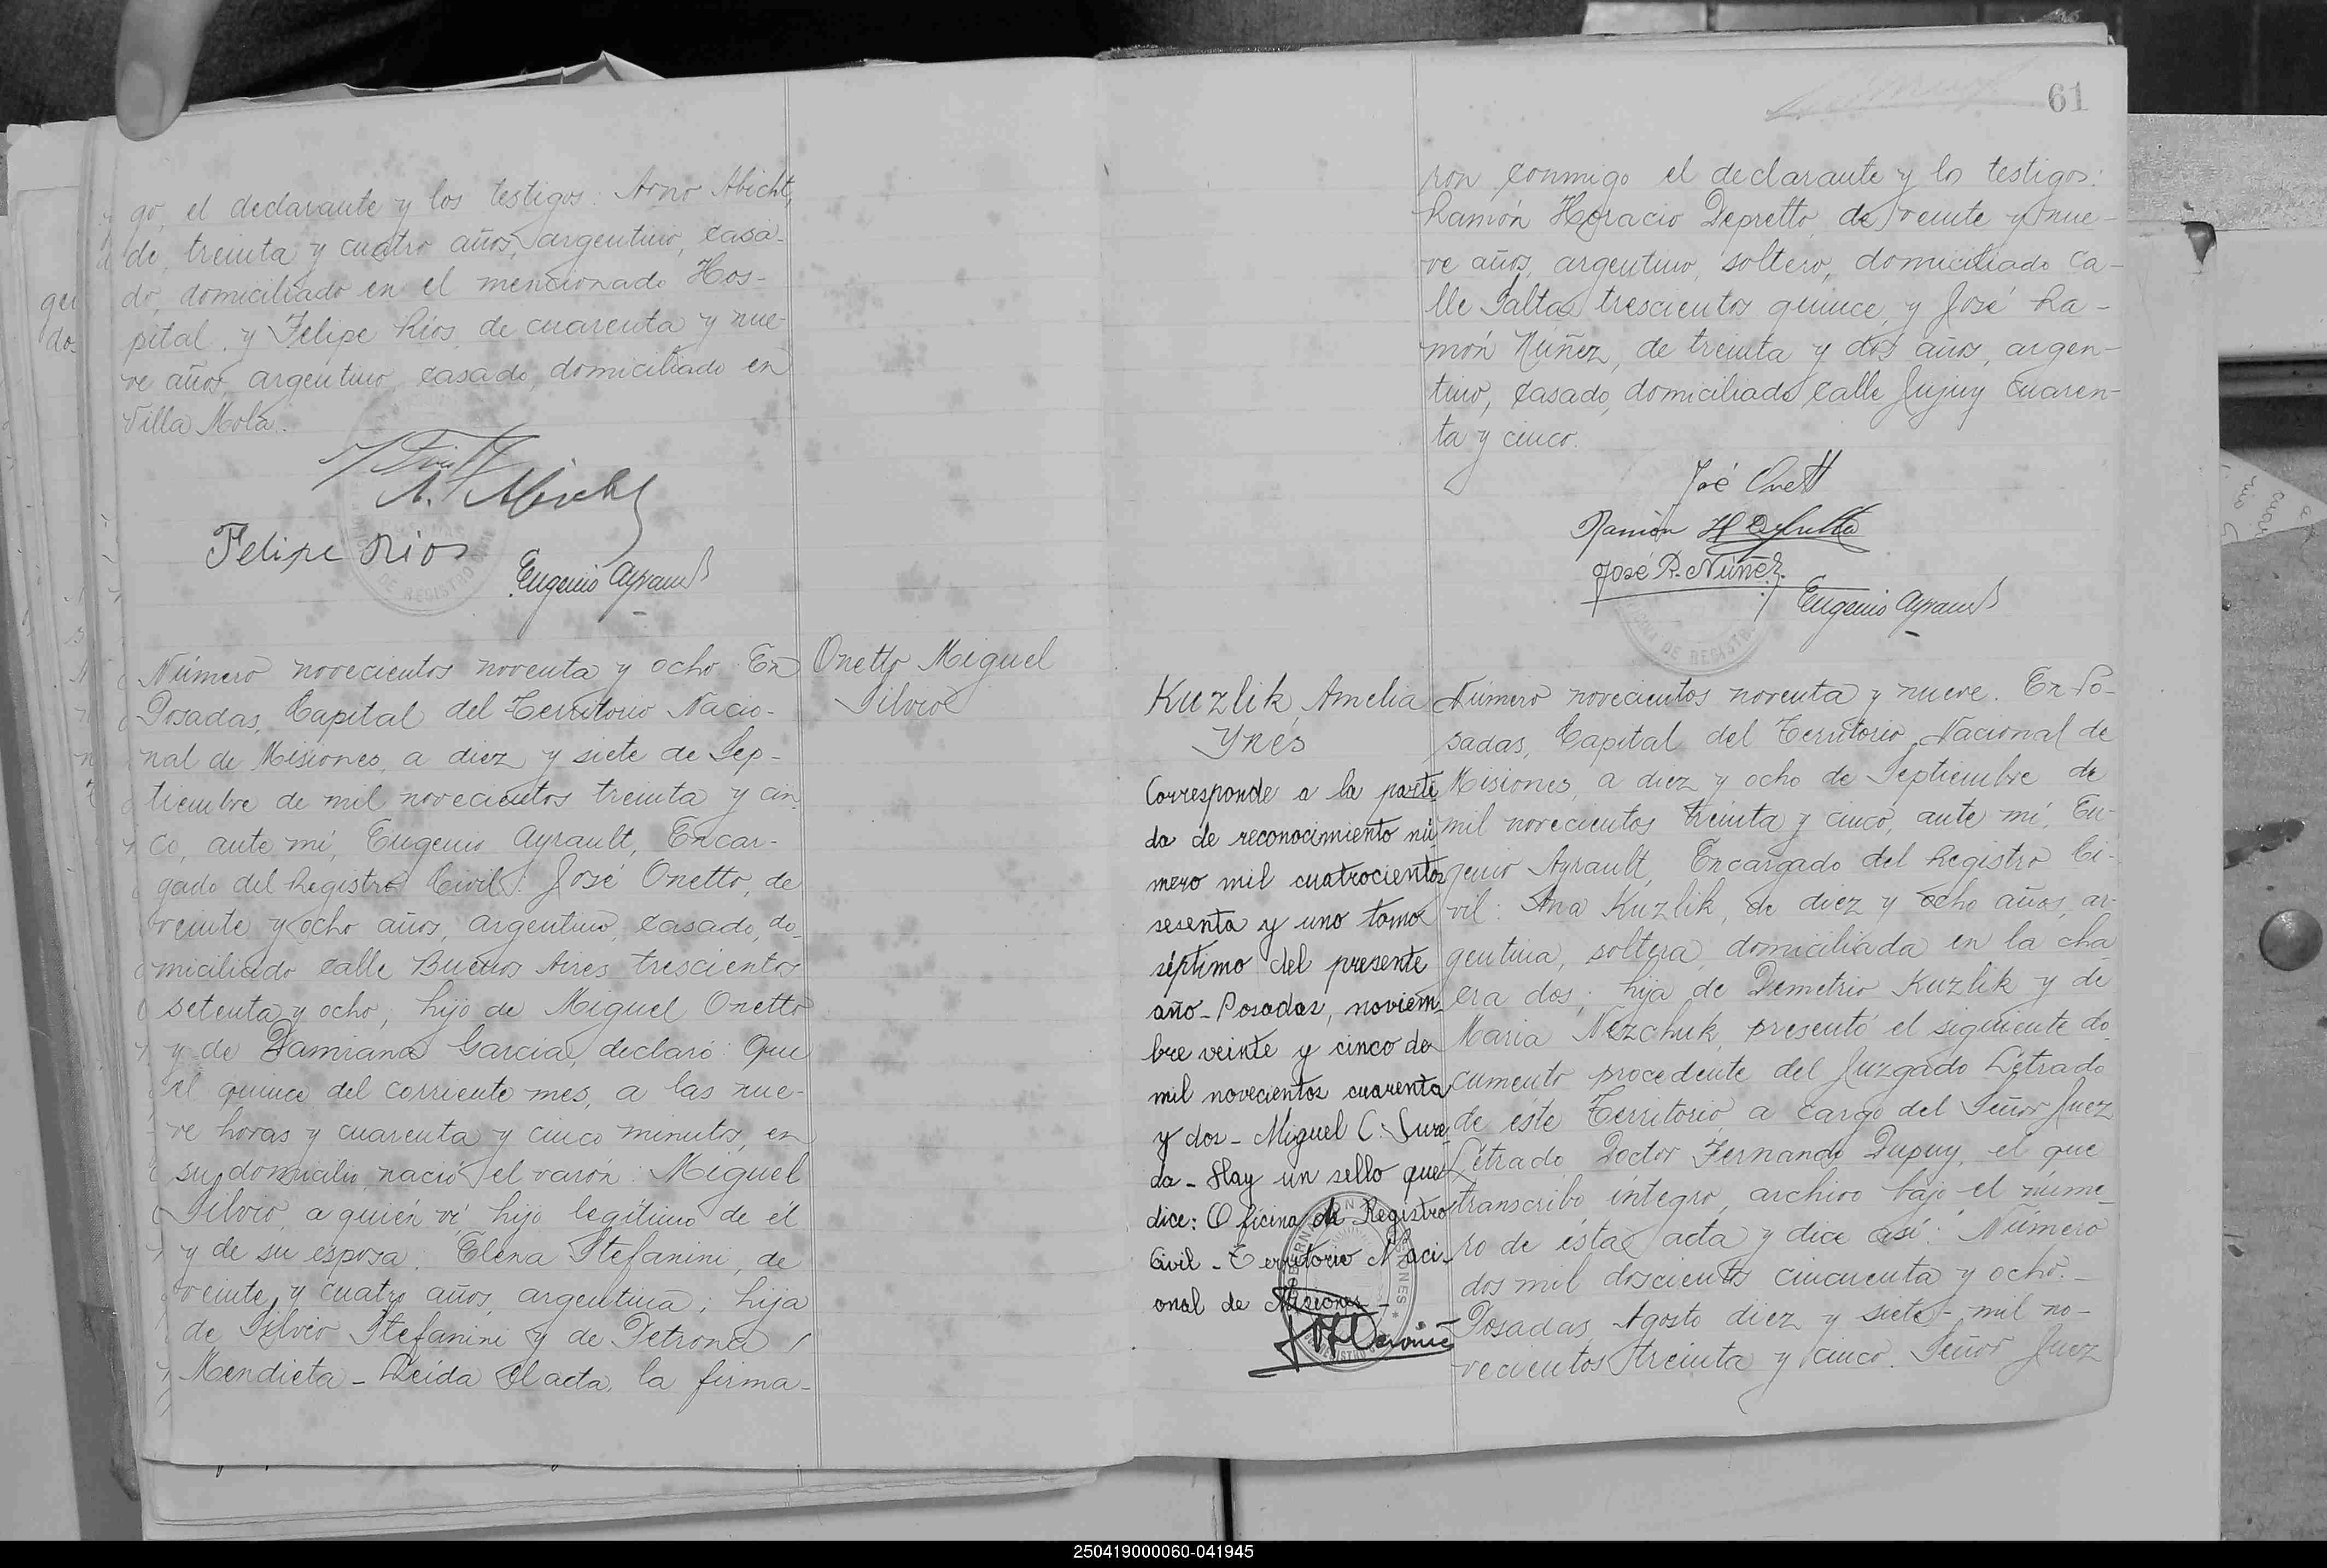 go, el declarante y los testigos: Arno Abicht,
de treinta y cuatro años, argentino, casa-
do, domiciliado en el mencionado Hos-
pital, y Felipe Ríos, de cuarenta y nue-
ve años, argentino, casado, domiciliado en
Villa Mola.
Felipe Rios
Eugenio Ayrault
Número novecientos noventa y ocho. En
Posadas, Capital del Territorio Nacio-
nal de Misiones, a diez y siete de Sep-
tiembre de mil novecientos treinta y cin
co, ante mí, Eugenio Ayrault, Encar-
gado del Registro Civil: José Onetto, de
veinte y ocho años, argentino, casado, do-
miciliado calle Buenos Aires trescientos
setenta y ocho; hijo de Miguel Onetto
y de Damiana Garcia, declaró: Que
el quince del corriente mes, a las nue-
ve horas y cuarenta y cinco minutos, en
su domicilio, nació el varón: Miguel
Silvio, a quién ví, hijo legítimo de él
y de su esposa: Elena Stefanini, de
veinte y cuatro años, argentina; hija
de Silvio Stefanini y de Petrona
Mendieta - Leida el acta, la firma-
Onetto Miguel
Silvio
61
ron conmigo el declarante y los testigos:
Ramón Horacio Depretto, de veinte y nue-
ve años, argentino, soltero, domiciliado ca-
lle Salta trescientos quince, y José Ra-
món Núñez, de treinta y dos años, argen-
tino, casado, domiciliado calle Jujuy cuaren-
ta y cinco.
José Onett
Ramón H Depretto
José R. Núñez
Eugenio Ayrault
Kuzlik, Amelia
Ynés
Corresponde a la parti
da de reconocimiento nú
mero mil cuatrocientos
sesenta y uno tomo
séptimo del presente
año - Posadas, noviem-
bre veinte y cinco de
mil novecientos cuarenta
y dos - Miguel C.
da - Hay un sello que
dice: Oficina de Registro
Civil - Territorio Naci-
onal de Misiones -
Número novecientos noventa y nueve. En Po-
sadas, Capital del Territorio Nacional de
Misiones, a diez y ocho de Septiembre de
mil novecientos treinta y cinco, ante mí, Eu-
genio Ayrault, Encargado del Registro Ci-
vil: Ana Kuzlik, de diez y ocho años, ar-
gentina, soltera, domiciliada en la cha
cra dos; hija de Demetrio Kuzlik y de
Maria Nezchuk, presentó el siguiente do
cumento procedente del Juzgado Letrado
de éste Territorio, a cargo del Señor Juez
Letrado Doctor Fernando Dupuy, el que
transcribo íntegro, archivo bajo el núme-
ro de ésta acta y dice así: Número
dos mil doscientos cincuenta y ocho. -
Posadas, Agosto diez y siete - mil no-
vecientos treinta y cinco. Señor Juez
250419000060-041945